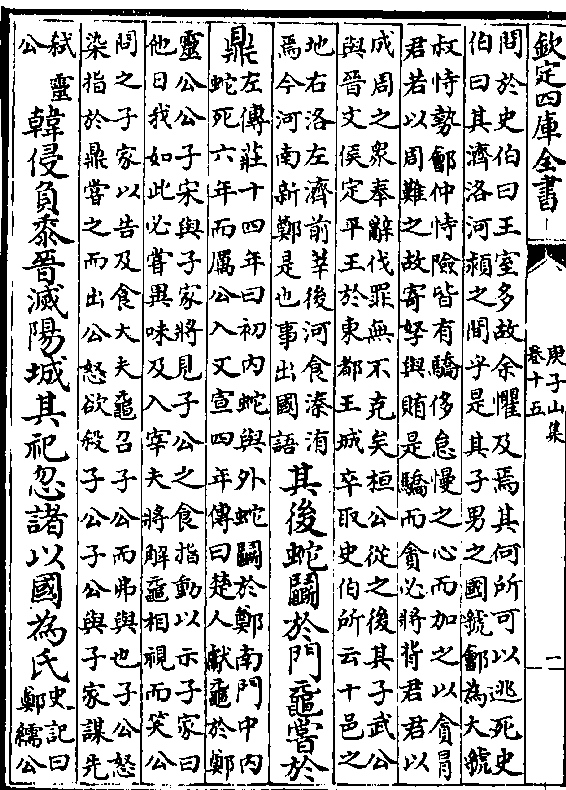 欽定四庫全書
庚子山集
卷十五
二
問於史伯曰王室多故余懼及焉其何所可以逃死史
伯曰其濟洛河潁之間乎是其子男之國虢鄶為大虢
叔恃勢鄶仲恃險皆有驕侈怠慢之心而加之以貪冒
君若以周難之故寄孥與賄是驕而貪必將背君君以
成周之衆奉辭伐罪無不克矣桓公從之後其子武公
與晉文侯定平王於東都王城卒取史伯所云十邑之
地右洛左濟前莘後河食溱洧
焉今河南新鄭是也事出國語
其後蛇鬭於門黿嘗於
鼎
左傳莊十四年曰初內蛇與外蛇鬭於鄭南門中內
蛇死六年而厲公入又宣四年傳曰楚人獻黿於鄭
靈公公子宋與子家將見子公之食指動以示子家曰
他日我如此必嘗異味及入宰夫將解黿相視而笑公
問之子家以告及食大夫黿召子公而弗與也子公怒
染指於鼎嘗之而出公怒欲殺子公子公與子家謀先
弑靈
公
韓侵負黍晉滅陽城其祀忽諸以國為氏
史記曰
鄭繻公